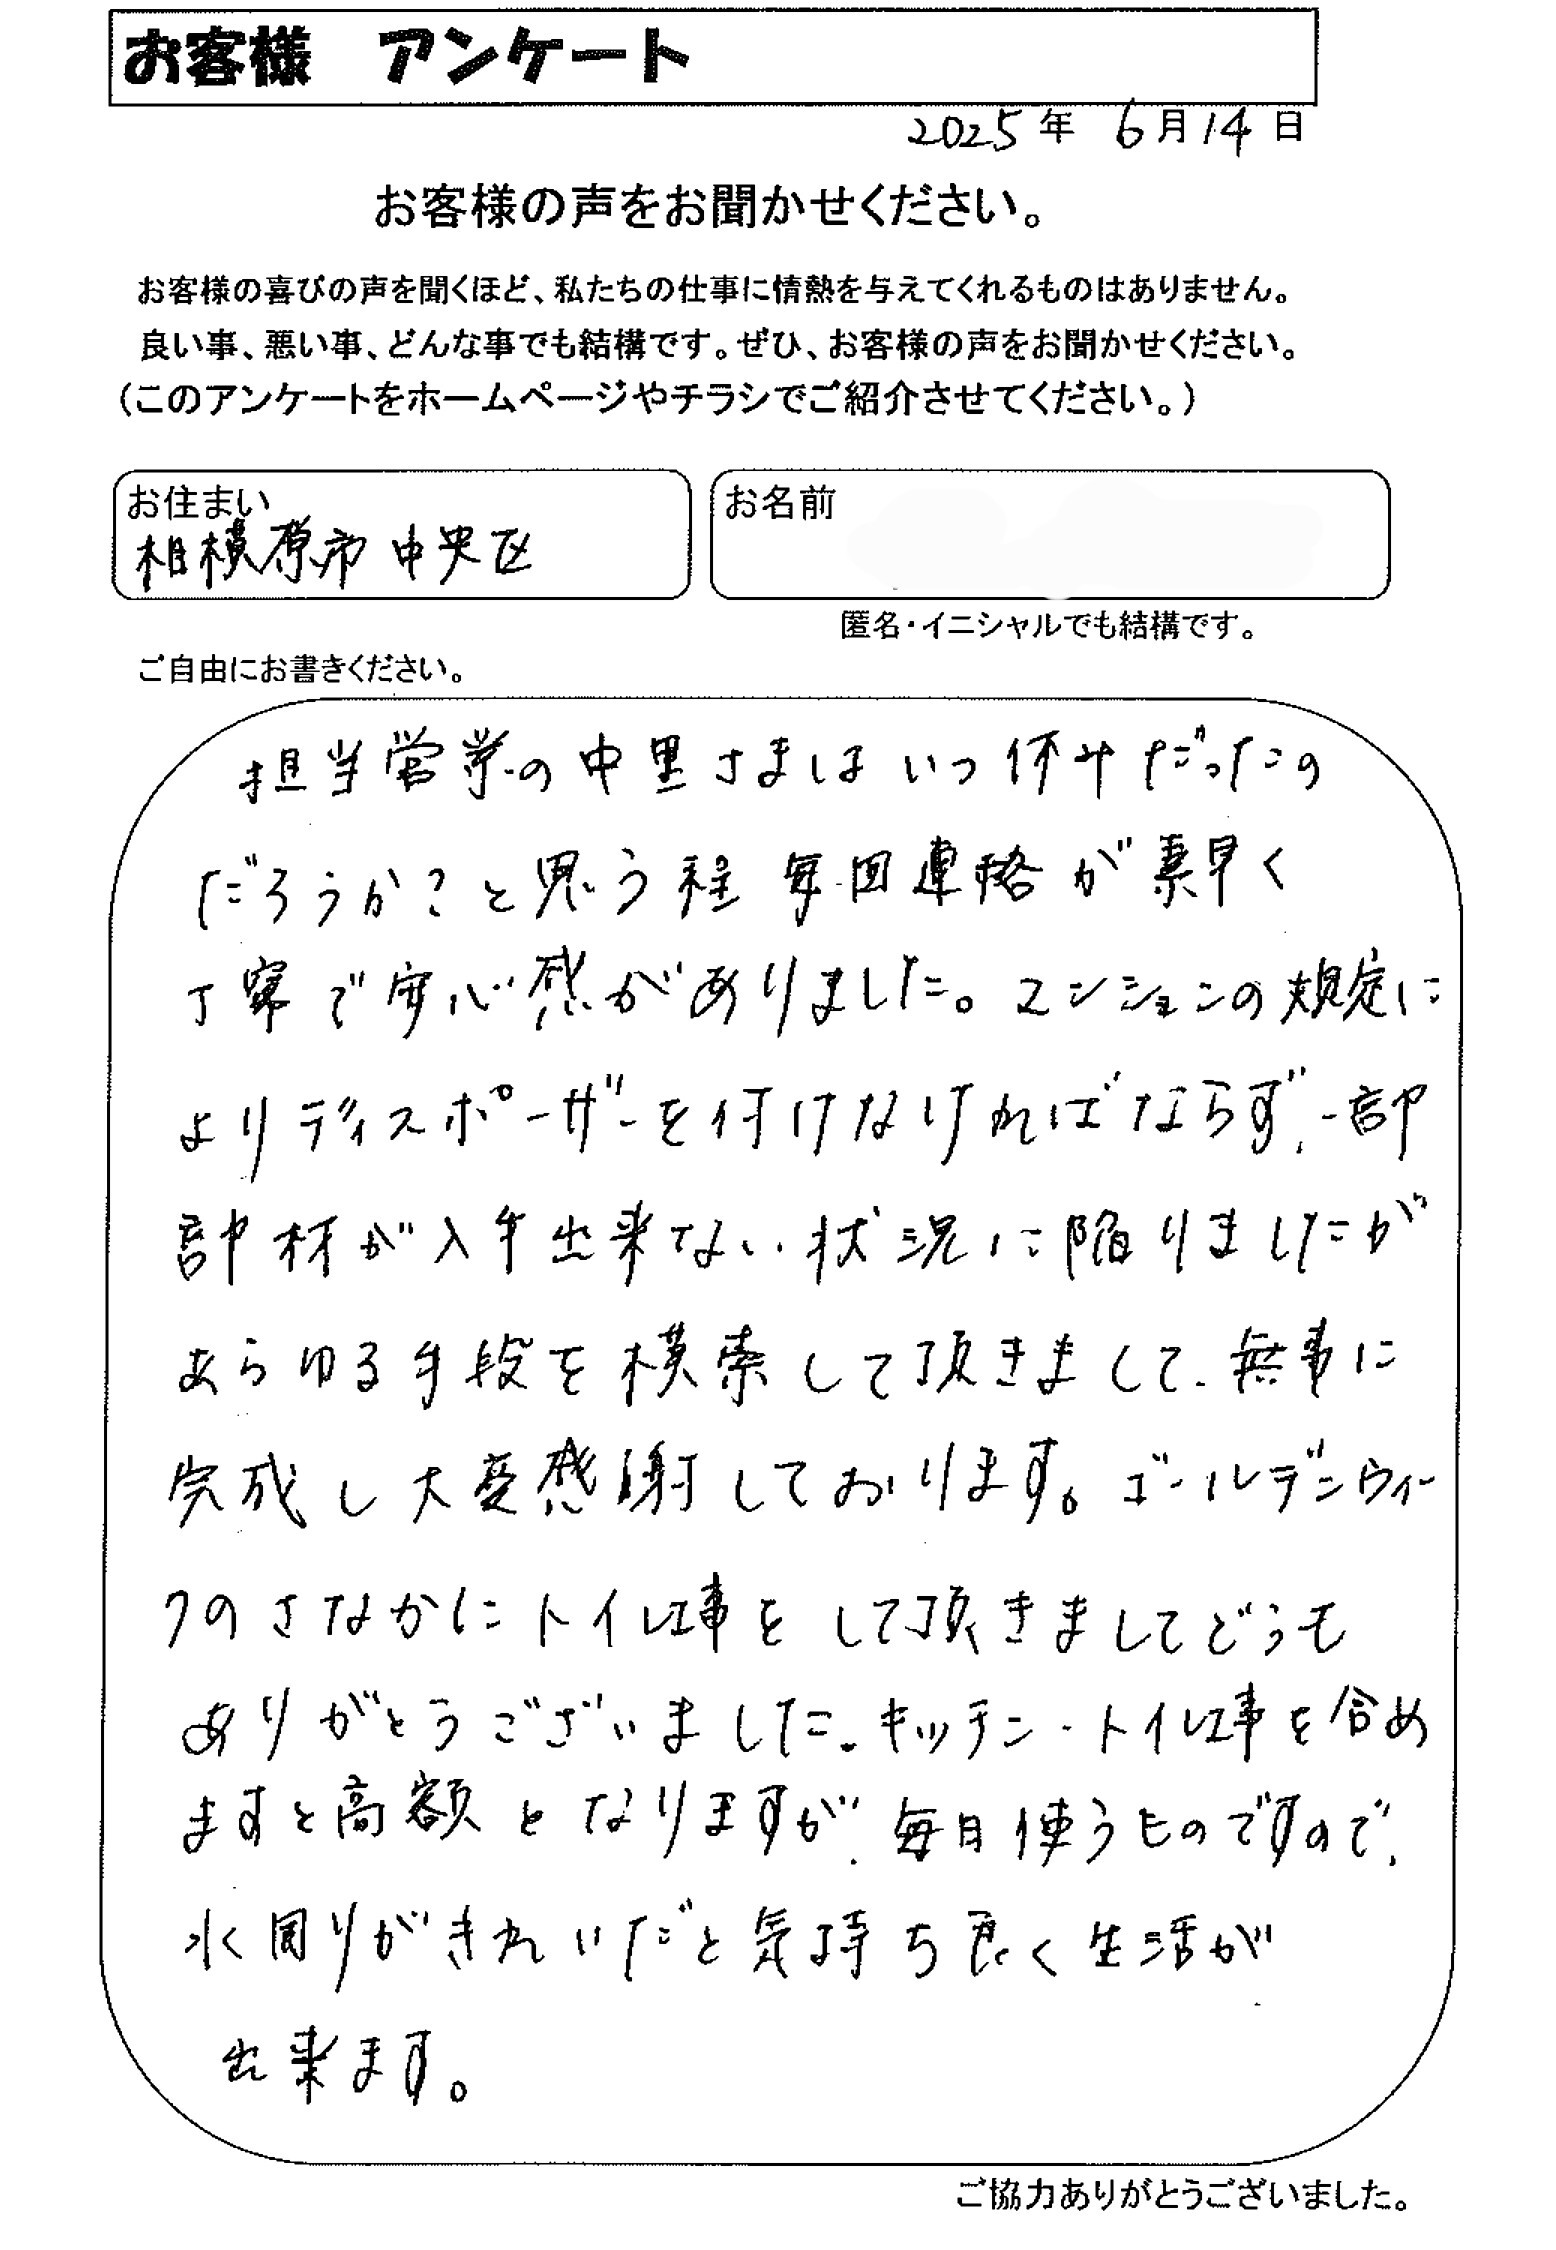 お客様 アンケート
2025年 6月14日
お客様の声をお聞かせください。
お客様の喜びの声を聞くほど、私たちの仕事に情熱を与えてくれるものはありません。
良い事、悪い事、どんな事でも結構です。ぜひ、お客様の声をお聞かせください。
(このアンケートをホームページやチラシでご紹介させてください。)
お住まい
相模原市中央区
お名前
匿名・イニシャルでも結構です。
ご自由にお書きください。
担当営業の中里さまはいつ休みだったの
だろうか?と思う程毎回連絡が素早く
丁寧で安心感がありました。マンションの規定に
よりディスポーザーを付けなければならず、一部
部材が入手出来ない状況に陥りましたが
あらゆる手段を模索して頂きまして、無事に
完成し大変感謝しております。ゴールデンウィー
クのさなかにトイレ工事をして頂きましてどうも
ありがとうございました。キッチン・トイレ工事を含め
ますと高額となりますが、毎日使うものですので、
水周りがきれいだと気持ち良く生活が
出来ます。
ご協力ありがとうございました。